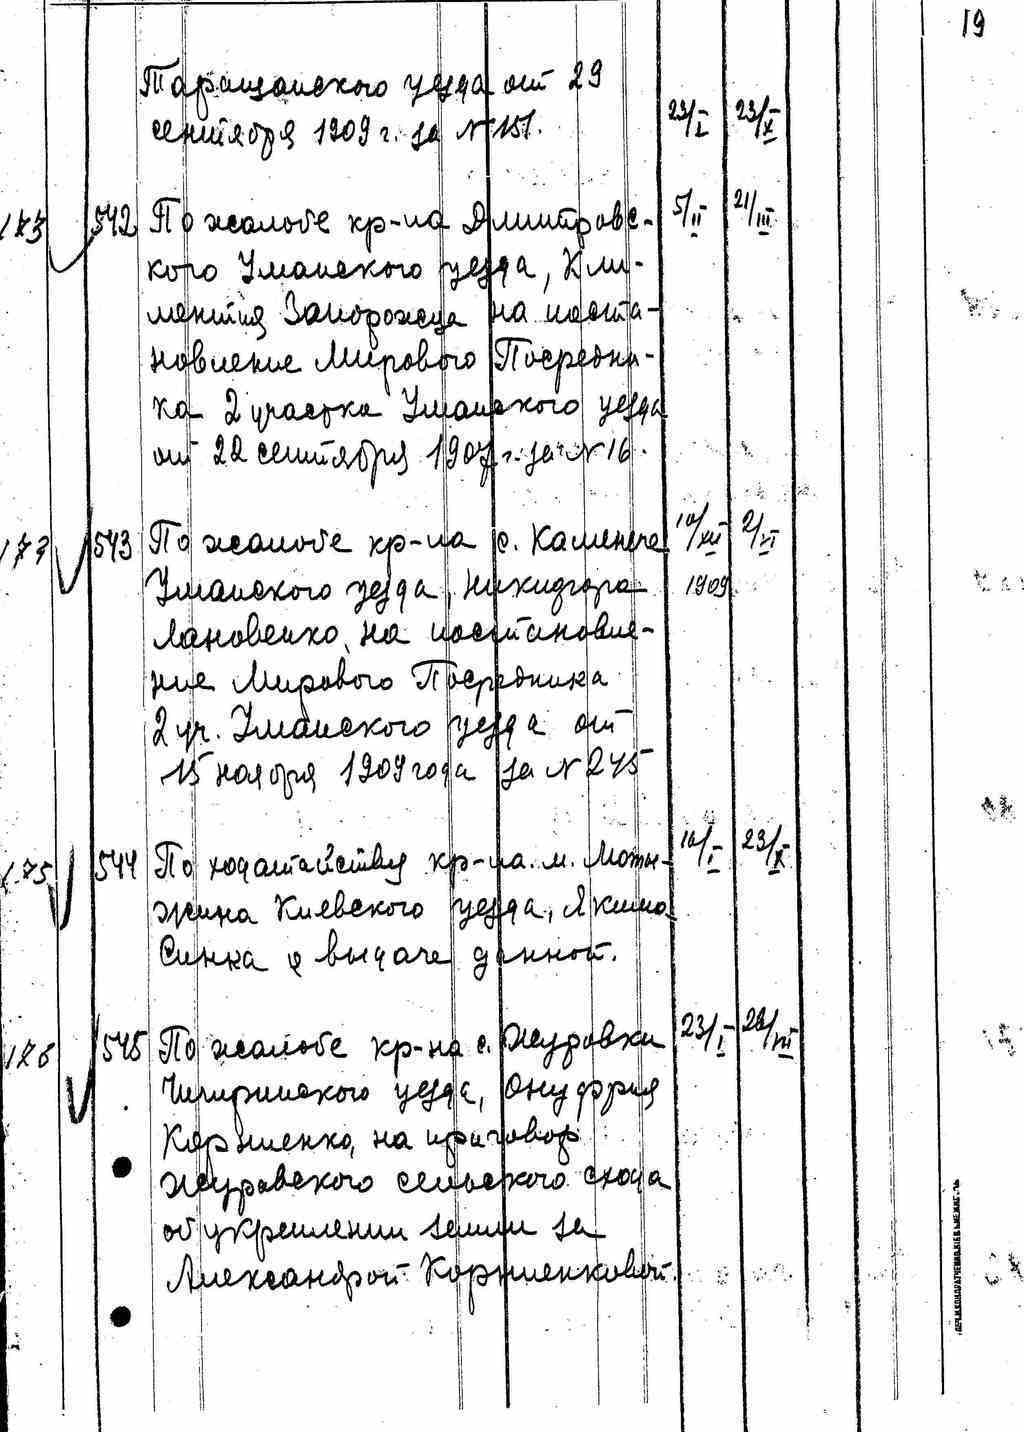 19
Таращанского уезда от 29
сентября 1909 г. за N 151. 23/I 23/X
173 542 По жалобе кр-на Дмитровс- 5/II 21/III
кого Уманского уезда, Кли-
ментия Запорожца на поста-
новление Мирового Посредни-
ка 2 участка Уманского уезда
от 22 сентября 1907 г. за N 16.
543 По жалобе кр-на с. Каменече 10/XII 2/VI
Уманского уезда, Никифора 1909
Лановенко, на постановле-
ние Мирового Посредника
2 уч. Уманского уезда от
15 ноября 1909 года за N 245
175 544 По ходатайству кр-на м. Моты- 10/I 23/X
жина Киевского уезда, Якима
Синка о выдаче данной.
176 545 По жалобе кр-на с. Журовки 23/I
Чигиринского уезда, Онуфрия
Корниенко, на приговор
Журовского сельского схода
об укреплении земли за
Александрой Корниенковой.